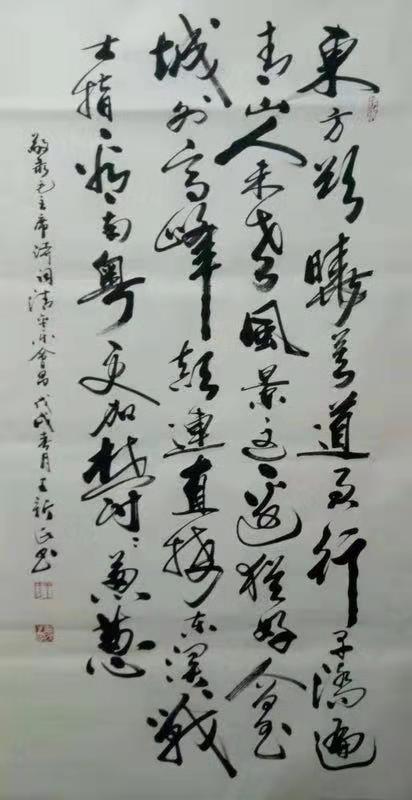 東方欲曉莫道君行早踏遍
青山人未老風景这邊獨好會昌
城外高峰颠連直接东溟戰
士指看南粤更加郁々葱葱
敬录毛主席诗词清平乐會昌戊戌春月王新正书